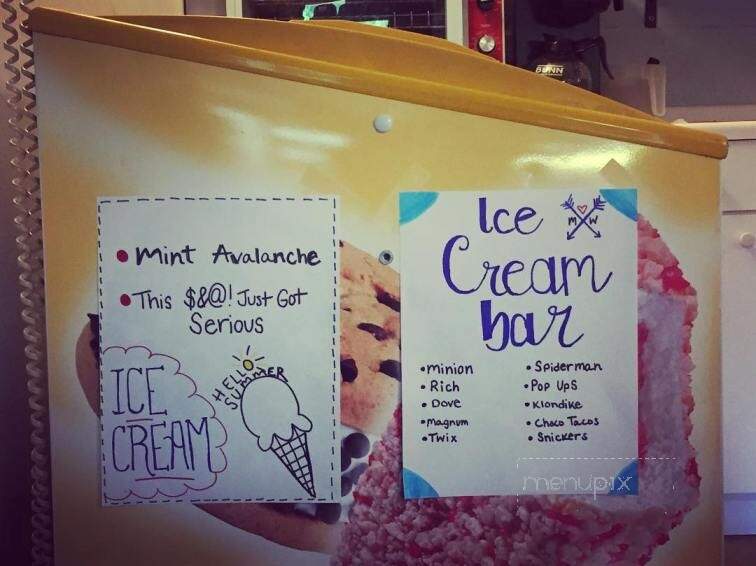 BUNN
• Mint Avalanche
• This $&@! Just Got
Serious
ICE
CREAM
HELLO
SUMMER
Ice
M W
Cream
bar
• minion
• Rich
• Dove
• magnum
• Twix
• Spiderman
• Pop Ups
• Klondike
• Choco Tacos
• Snickers
menupix